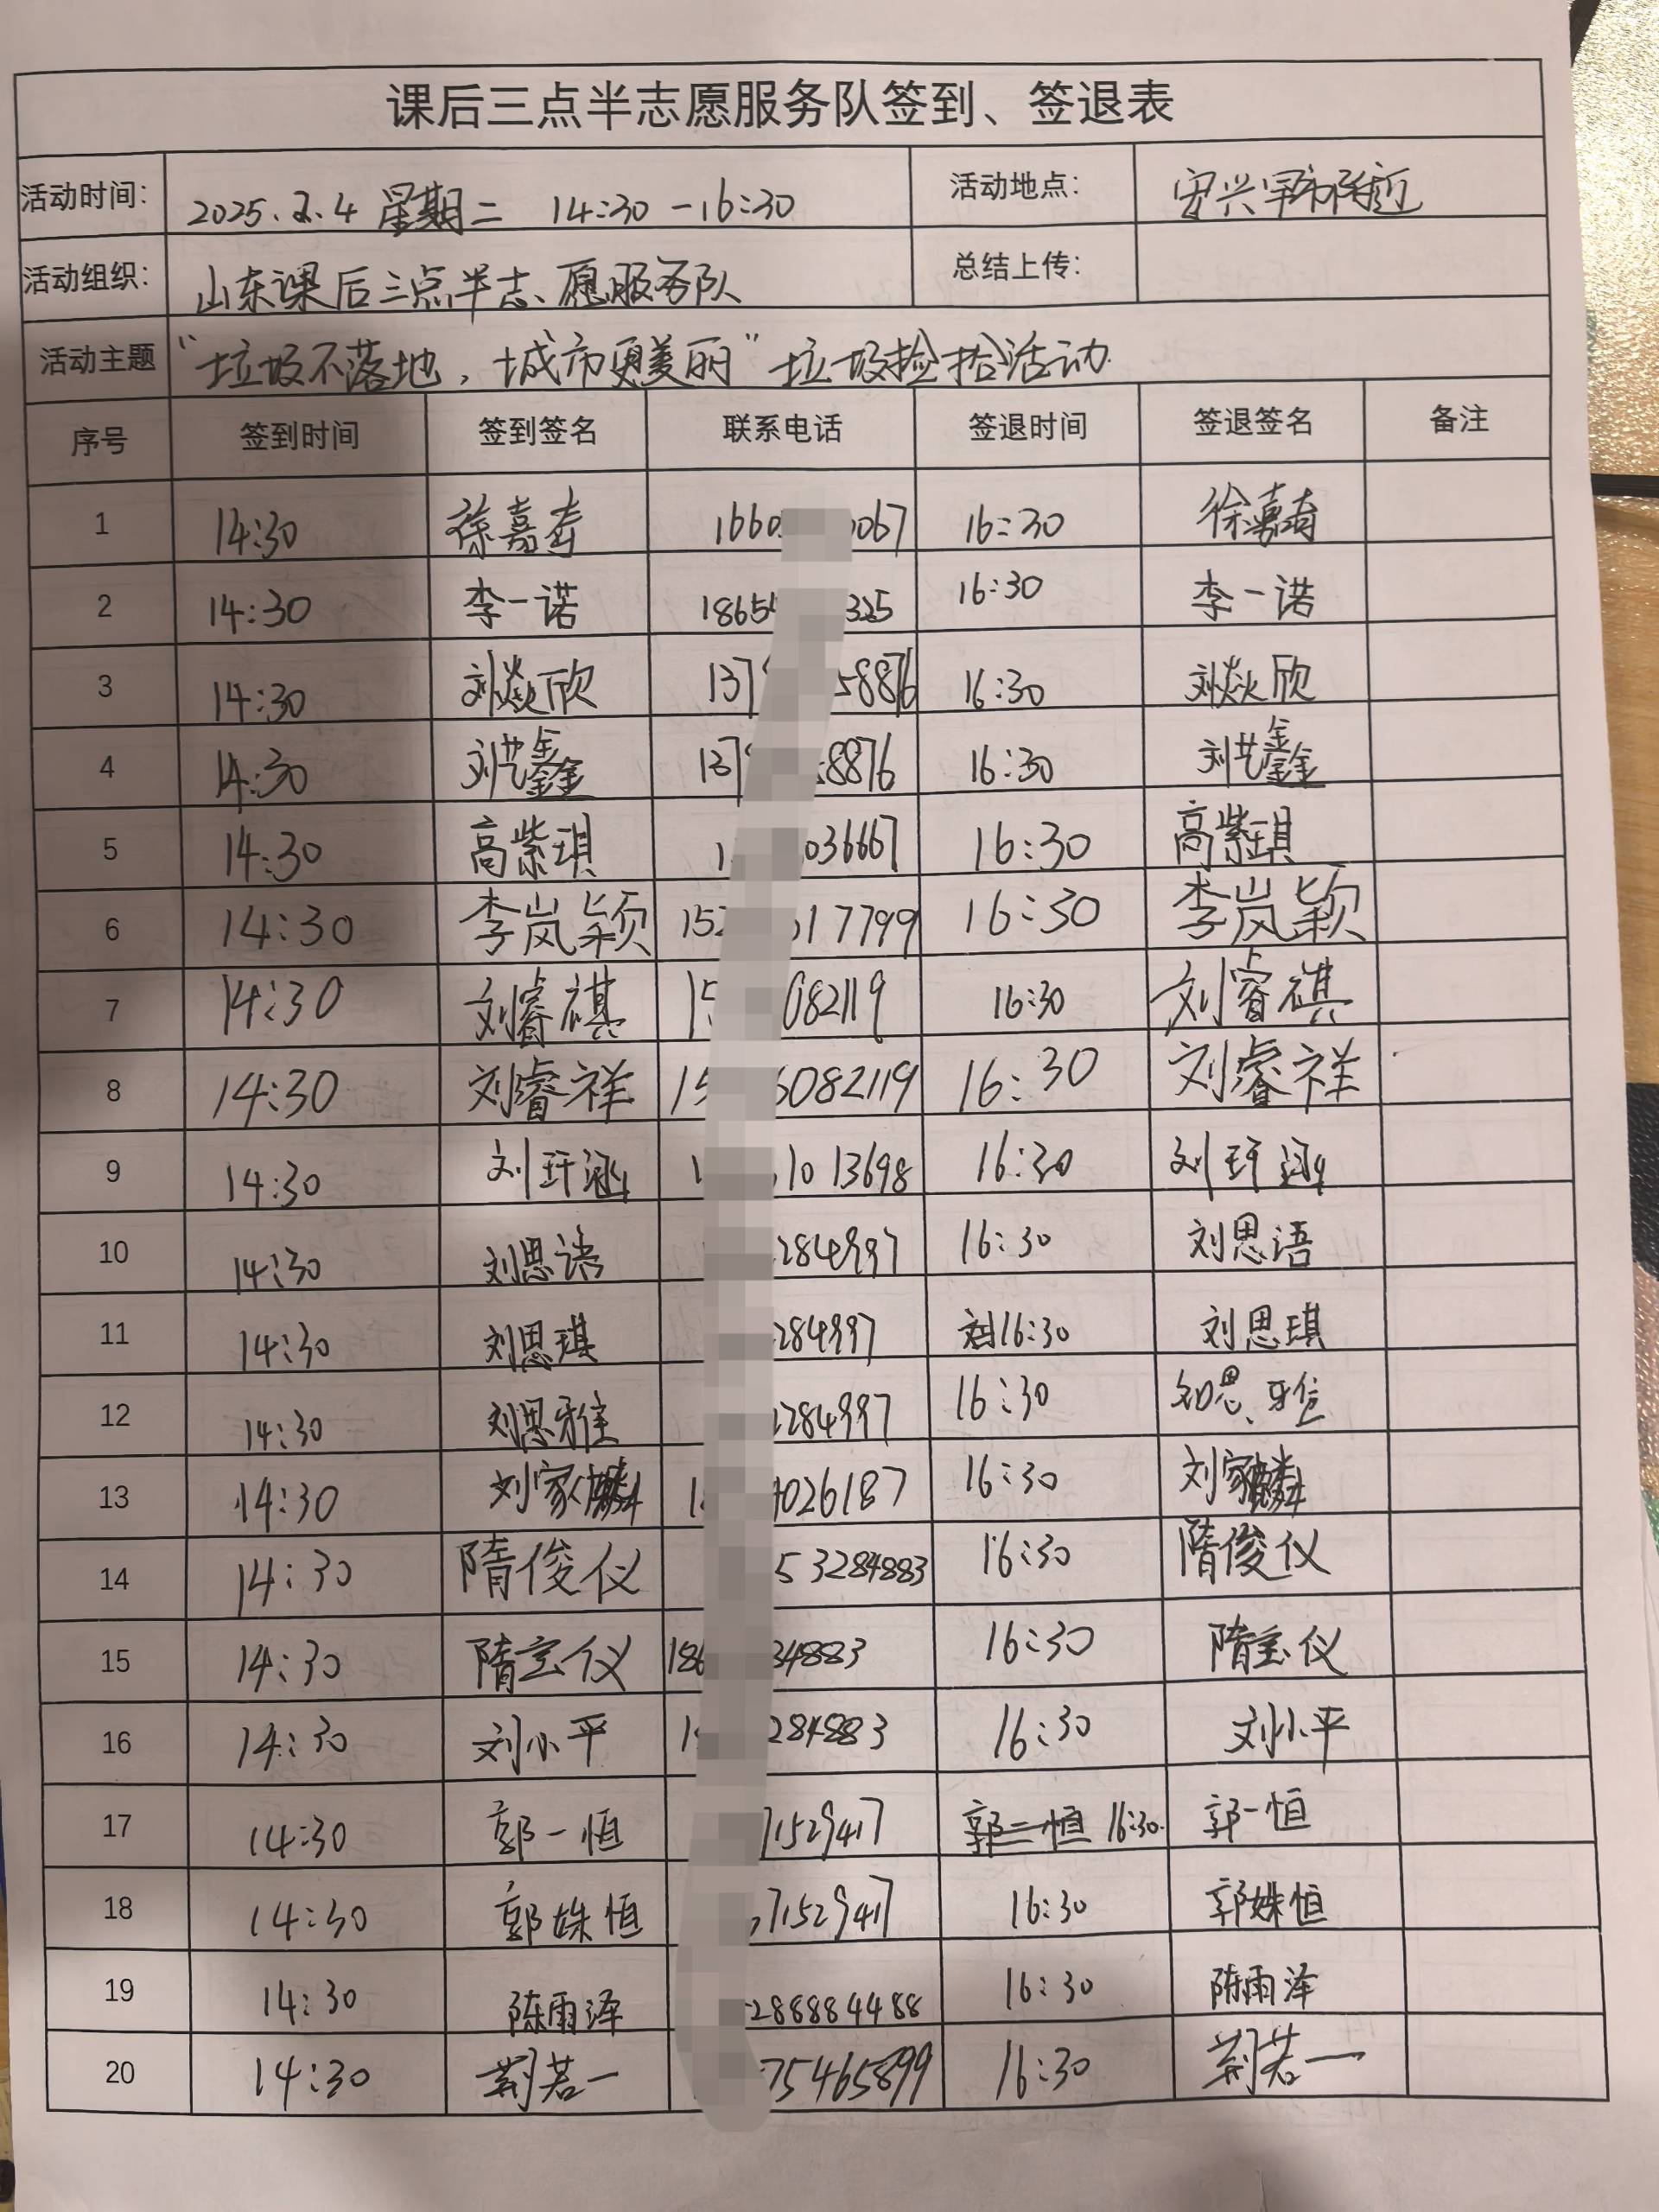 课后三点半志愿服务队签到、签退表
活动时间： 2025.2.4 星期二 14:30-16:30 活动地点： 附近
活动组织： 山东课后三点半志愿服务队 总结上传：
活动主题 “垃圾不落地，城市更美丽”垃圾捡拾活动
序号 签到时间 签到签名 联系电话 签退时间 签退签名 备注
1 14:30 徐嘉 166 067 16:30 徐嘉
2 14:30 李一诺 1865 325 16:30 李一诺
3 14:30 刘焱欣 137 8876 16:30 刘焱欣
4 14:30 刘艺鑫 137 8876 16:30 刘艺鑫
5 14:30 高紫琪 1 036667 16:30 高紫琪
6 14:30 李岚颖 152 17799 16:30 李岚颖
7 14:30 刘睿祺 15 082119 16:30 刘睿祺
8 14:30 刘睿祥 15 6082119 16:30 刘睿祥
9 14:30 刘玕涵 1013698 16:30 刘玕涵
10 14:30 刘思语 284997 16:30 刘思语
11 14:30 刘思琪 284997 16:30 刘思琪
12 14:30 刘思雅 284997 16:30 刘思雅
13 14:30 刘家麟 1 026187 16:30 刘家麟
14 14:30 隋俊仪 53284883 16:30 隋俊仪
15 14:30 隋宝仪 186 84883 16:30 隋宝仪
16 14:30 刘小平 1 284883 16:30 刘小平
17 14:30 郭一恒 71529417 16:30 郭一恒
18 14:30 郭姝恒 71529417 16:30 郭姝恒
19 14:30 陈雨泽 288884488 16:30 陈雨泽
20 14:30 荆若一 75465899 16:30 荆若一